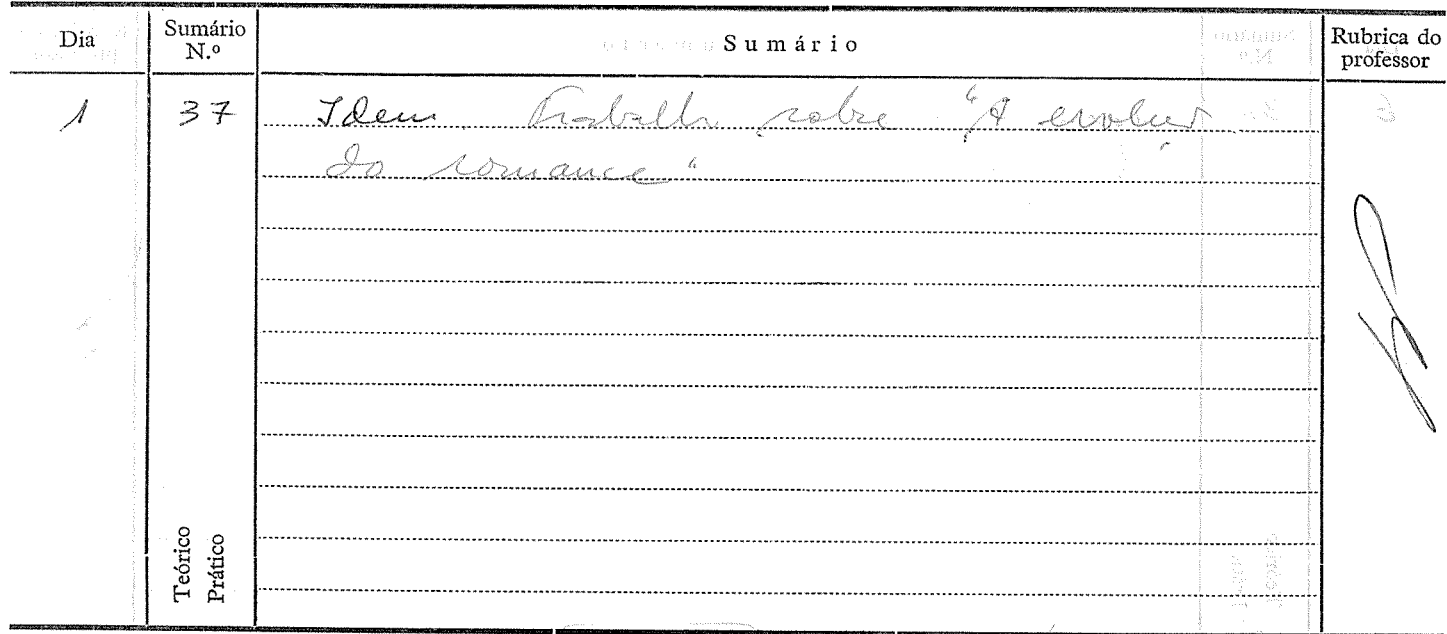 Dia Sumário N.º Sumário Rubrica do professor
1 37 Idem Trabalho sobre "A evolução
do romance"
Teórico
Prático